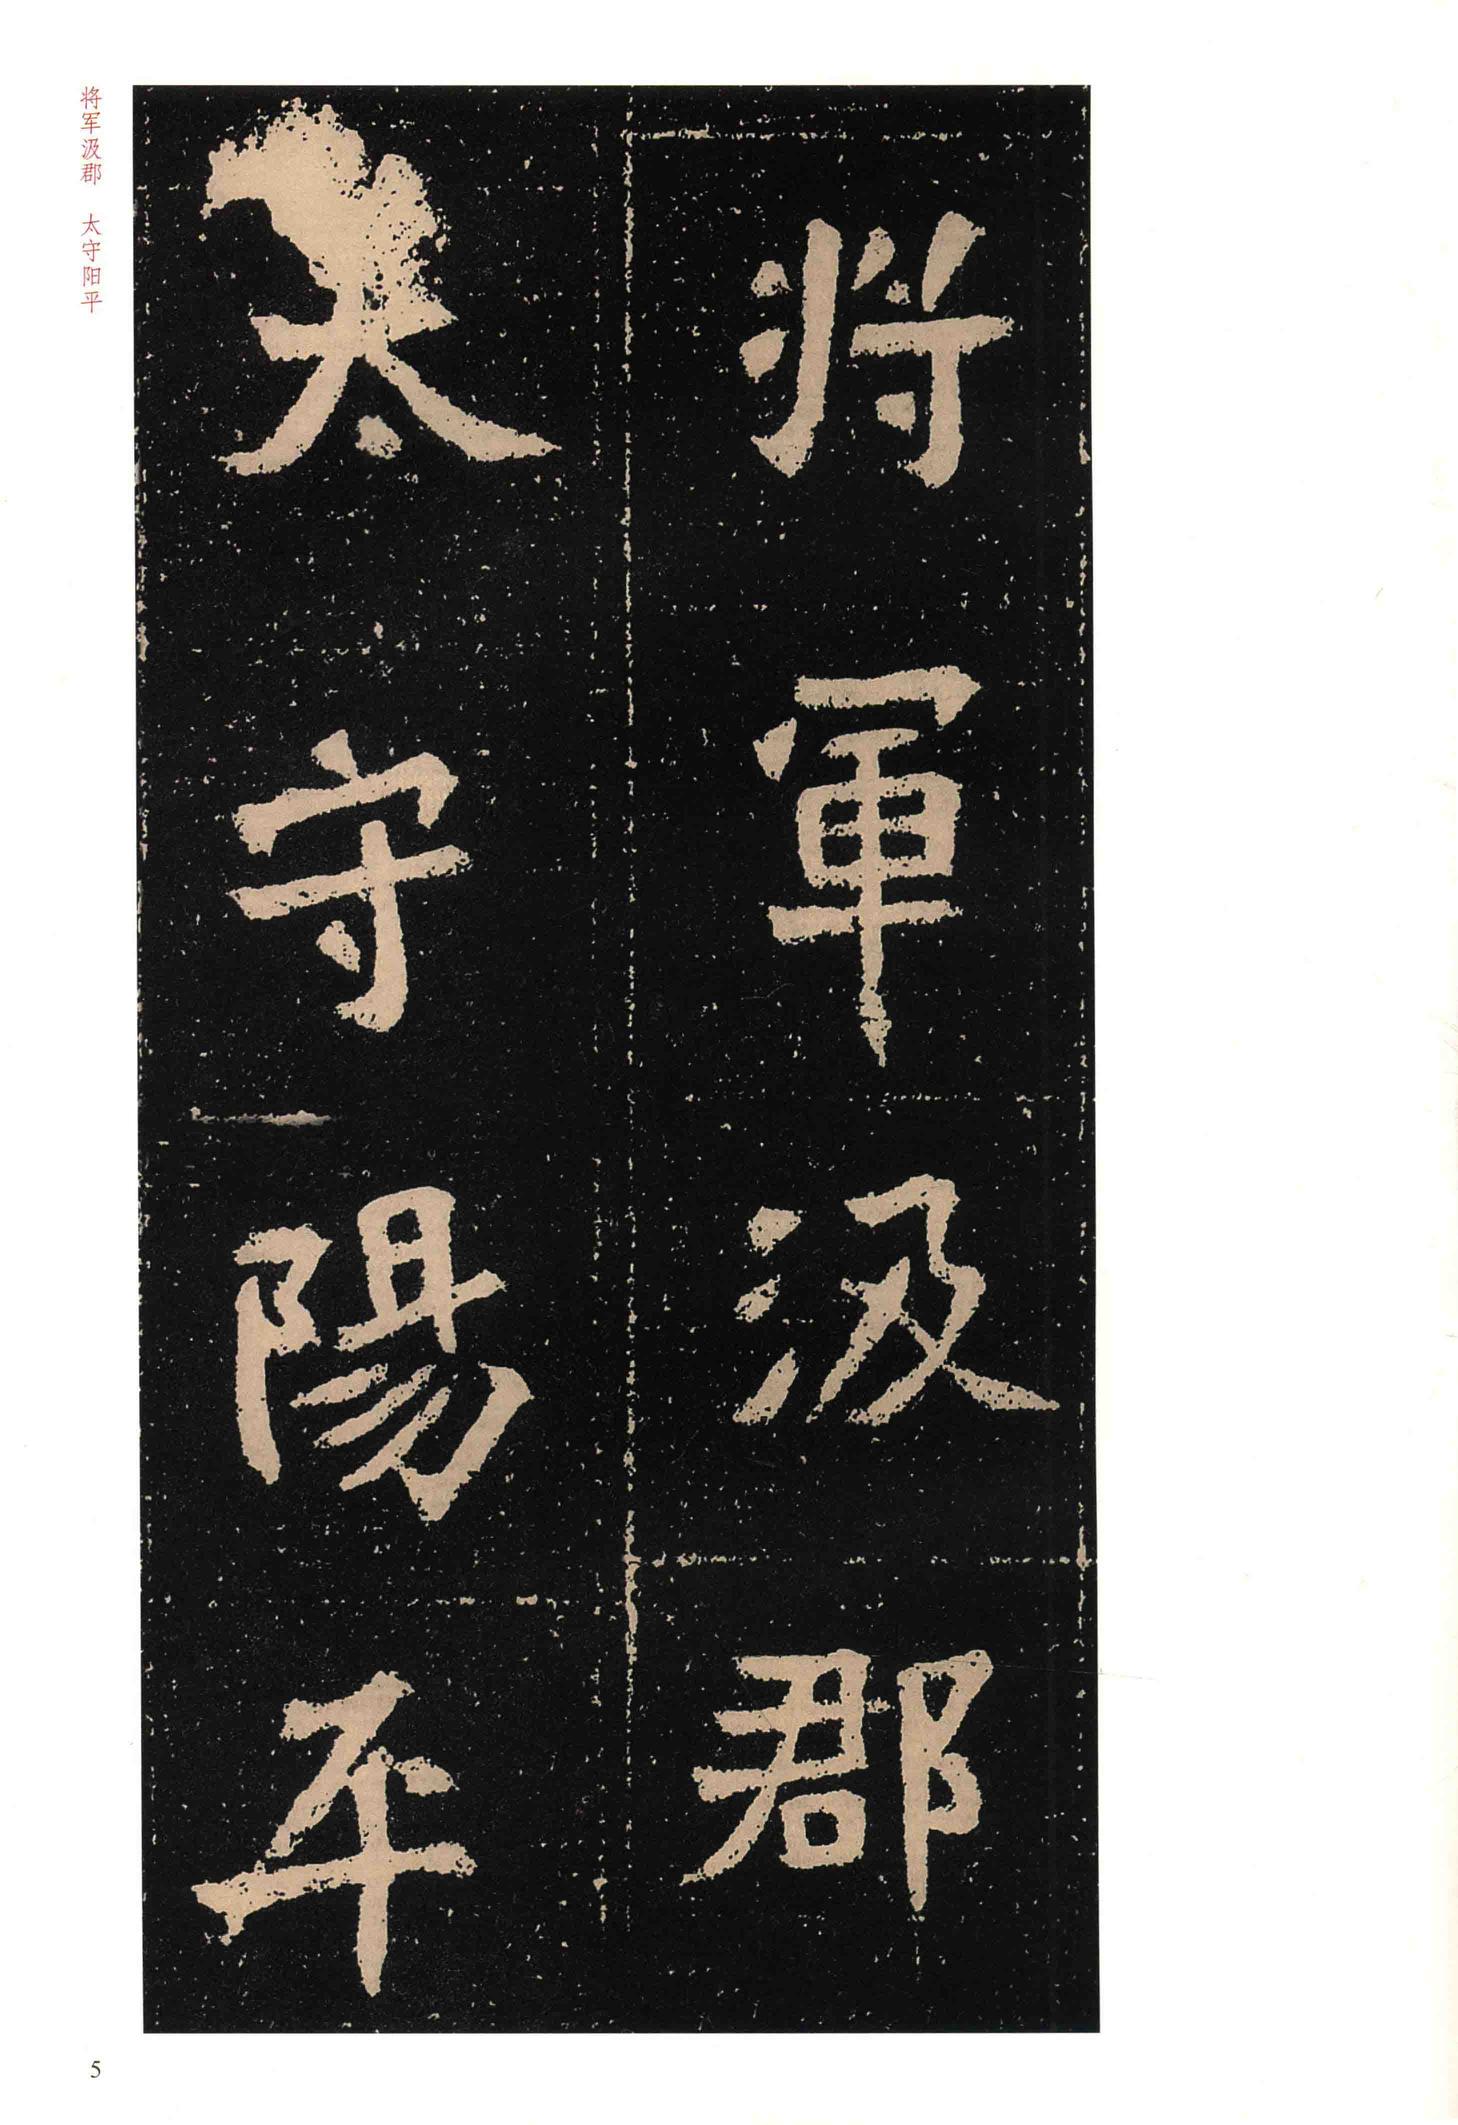 將軍汲郡
太守陽平
将军汲郡 太守阳平
5